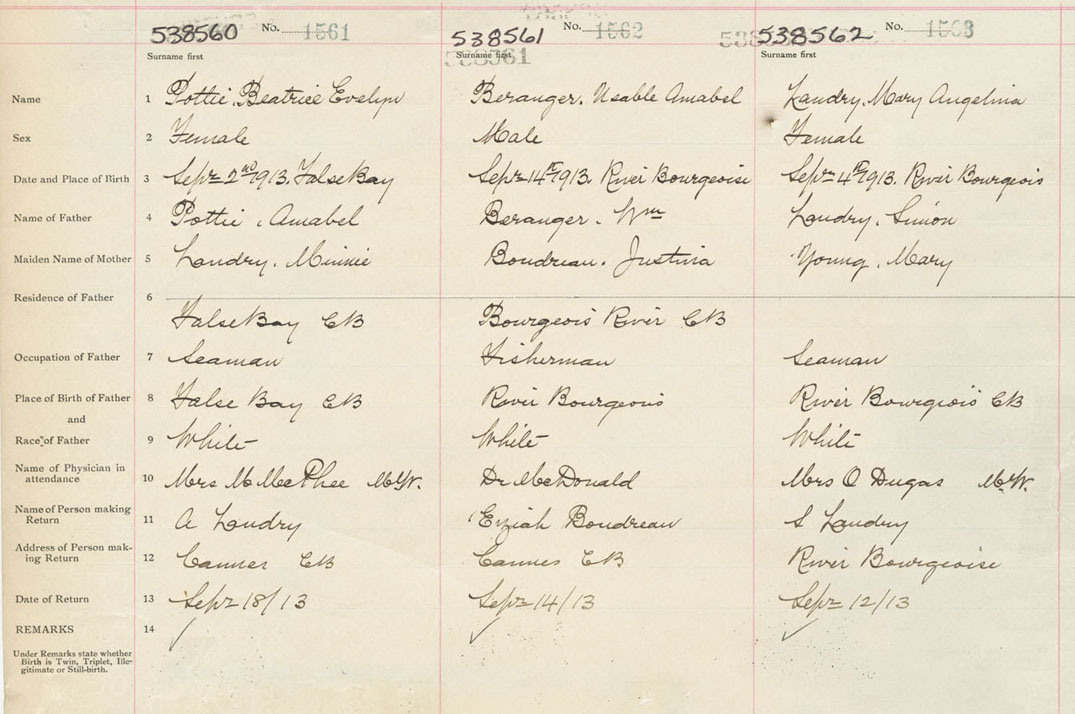 538560 No. 1561 538561 No. 1562 538562 No. 1563
Surname first Surname first Surname first
538561
Name 1 Pottie, Beatrice Evelyn Beranger, Usable Amabel Landry, Mary Angelina
Sex 2 Female Male Female
Date and Place of Birth 3 Sepr 2nd 1913. False Bay Sepr 14th 1913. River Bourgeoise Sepr 4th 1913. River Bourgeois
Name of Father 4 Pottie, Amabel Beranger, Wm Landry, Simon
Maiden Name of Mother 5 Landry, Minnie Boudreau, Justina Young, Mary
Residence of Father 6
False Bay CB Bourgeois River CB
Occupation of Father 7 Seaman Fisherman Seaman
Place of Birth of Father 8 False Bay CB River Bourgeois River Bourgeois CB
and
Race of Father 9 White White White
Name of Physician in
attendance 10 Mrs M McPhee M.W. Dr McDonald Mrs O Dugas M.W.
Name of Person making
Return 11 A Landry Boudreau S Landry
Address of Person mak-
ing Return 12 Cannes CB Cannes CB River Bourgeoise
Date of Return 13 Sepr 18/13 Sepr 14/13 Sepr 12/13
REMARKS 14
Under Remarks state whether
Birth is Twin, Triplet, Ille-
gitimate or Still-birth.